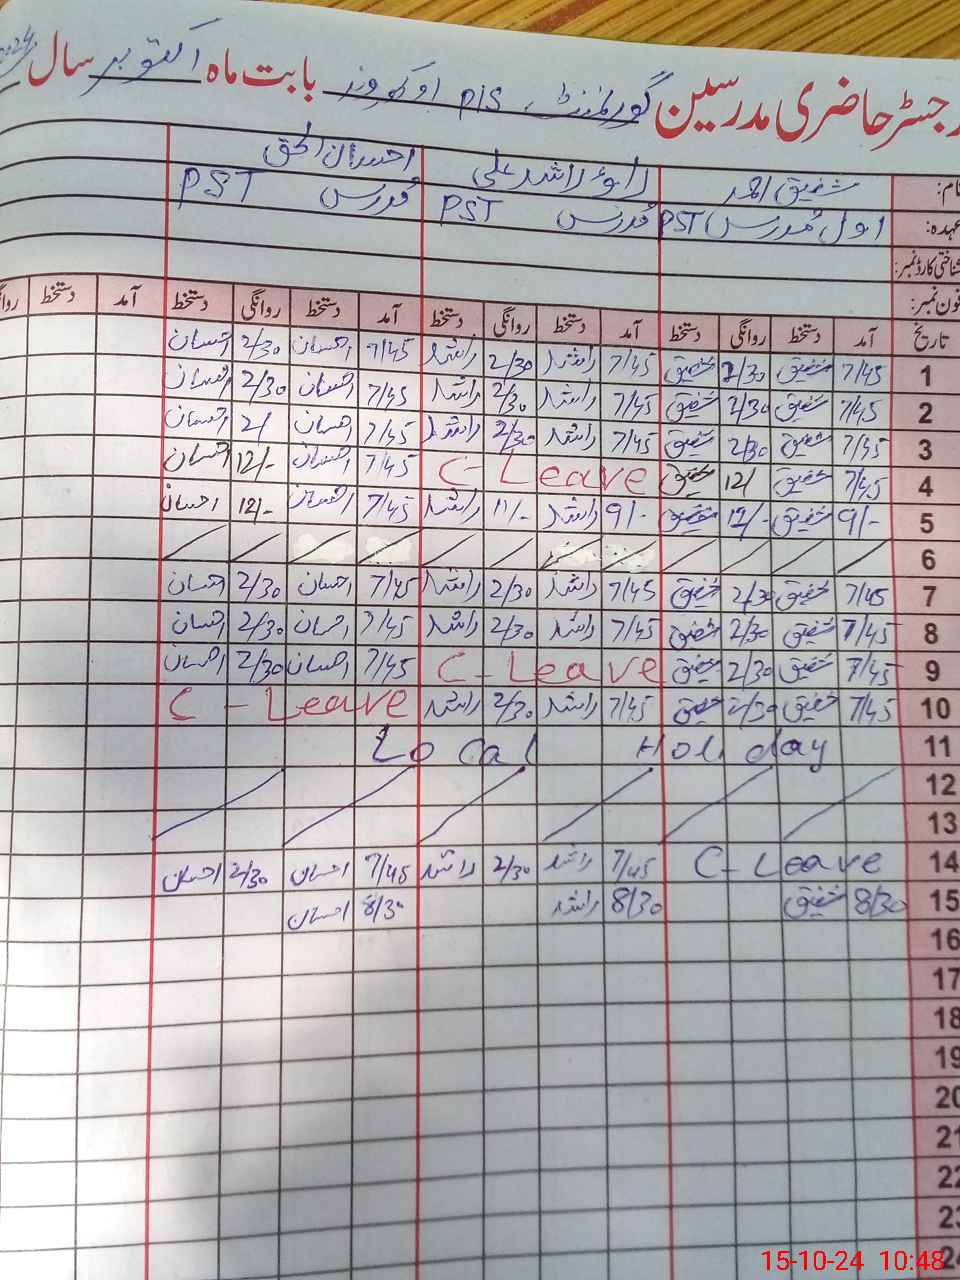 رجسٹر حاضری مدرسین گورنمنٹ P/S بابت ماہ اکتوبر سال 2024
نام: شفیق احمد راؤ راشد علی احسان الحق
عہدہ: اول مدرس PST مدرس PST مدرس PST
شناختی کارڈ نمبر:
فون نمبر:
تاریخ آمد دستخط روانگی دستخط آمد دستخط روانگی دستخط آمد دستخط روانگی دستخط آمد دستخط
1 7/45 شفیق 2/30 شفیق 7/45 راشد 2/30 راشد 7/45 احسان 2/30 احسان
2 7/45 شفیق 2/30 شفیق 7/45 راشد 2/30 راشد 7/45 احسان 2/30 احسان
3 7/45 شفیق 2/30 شفیق 7/45 راشد 2/30 راشد 7/45 احسان 2/ احسان
4 7/45 شفیق 12/ شفیق C-Leave 7/45 احسان 12/- احسان
5 9/- شفیق 12/- شفیق 9/- راشد 11/- راشد 7/45 احسان 12/- احسان
6
7 7/45 شفیق 2/30 شفیق 7/45 راشد 2/30 راشد 7/45 احسان 2/30 احسان
8 7/45 شفیق 2/30 شفیق 7/45 راشد 2/30 راشد 7/45 احسان 2/30 احسان
9 7/45 شفیق 2/30 شفیق C-Leave 7/45 احسان 2/30 احسان
10 7/45 شفیق 2/30 شفیق 7/45 راشد 2/30 راشد C-Leave
11 Local Holiday
12
13
14 C-Leave 7/45 راشد 2/30 راشد 7/45 احسان 2/30 احسان
15 8/30 شفیق 8/30 راشد 8/30 احسان
16
17
18
19
20
21
22
23
24
15-10-24 10:48